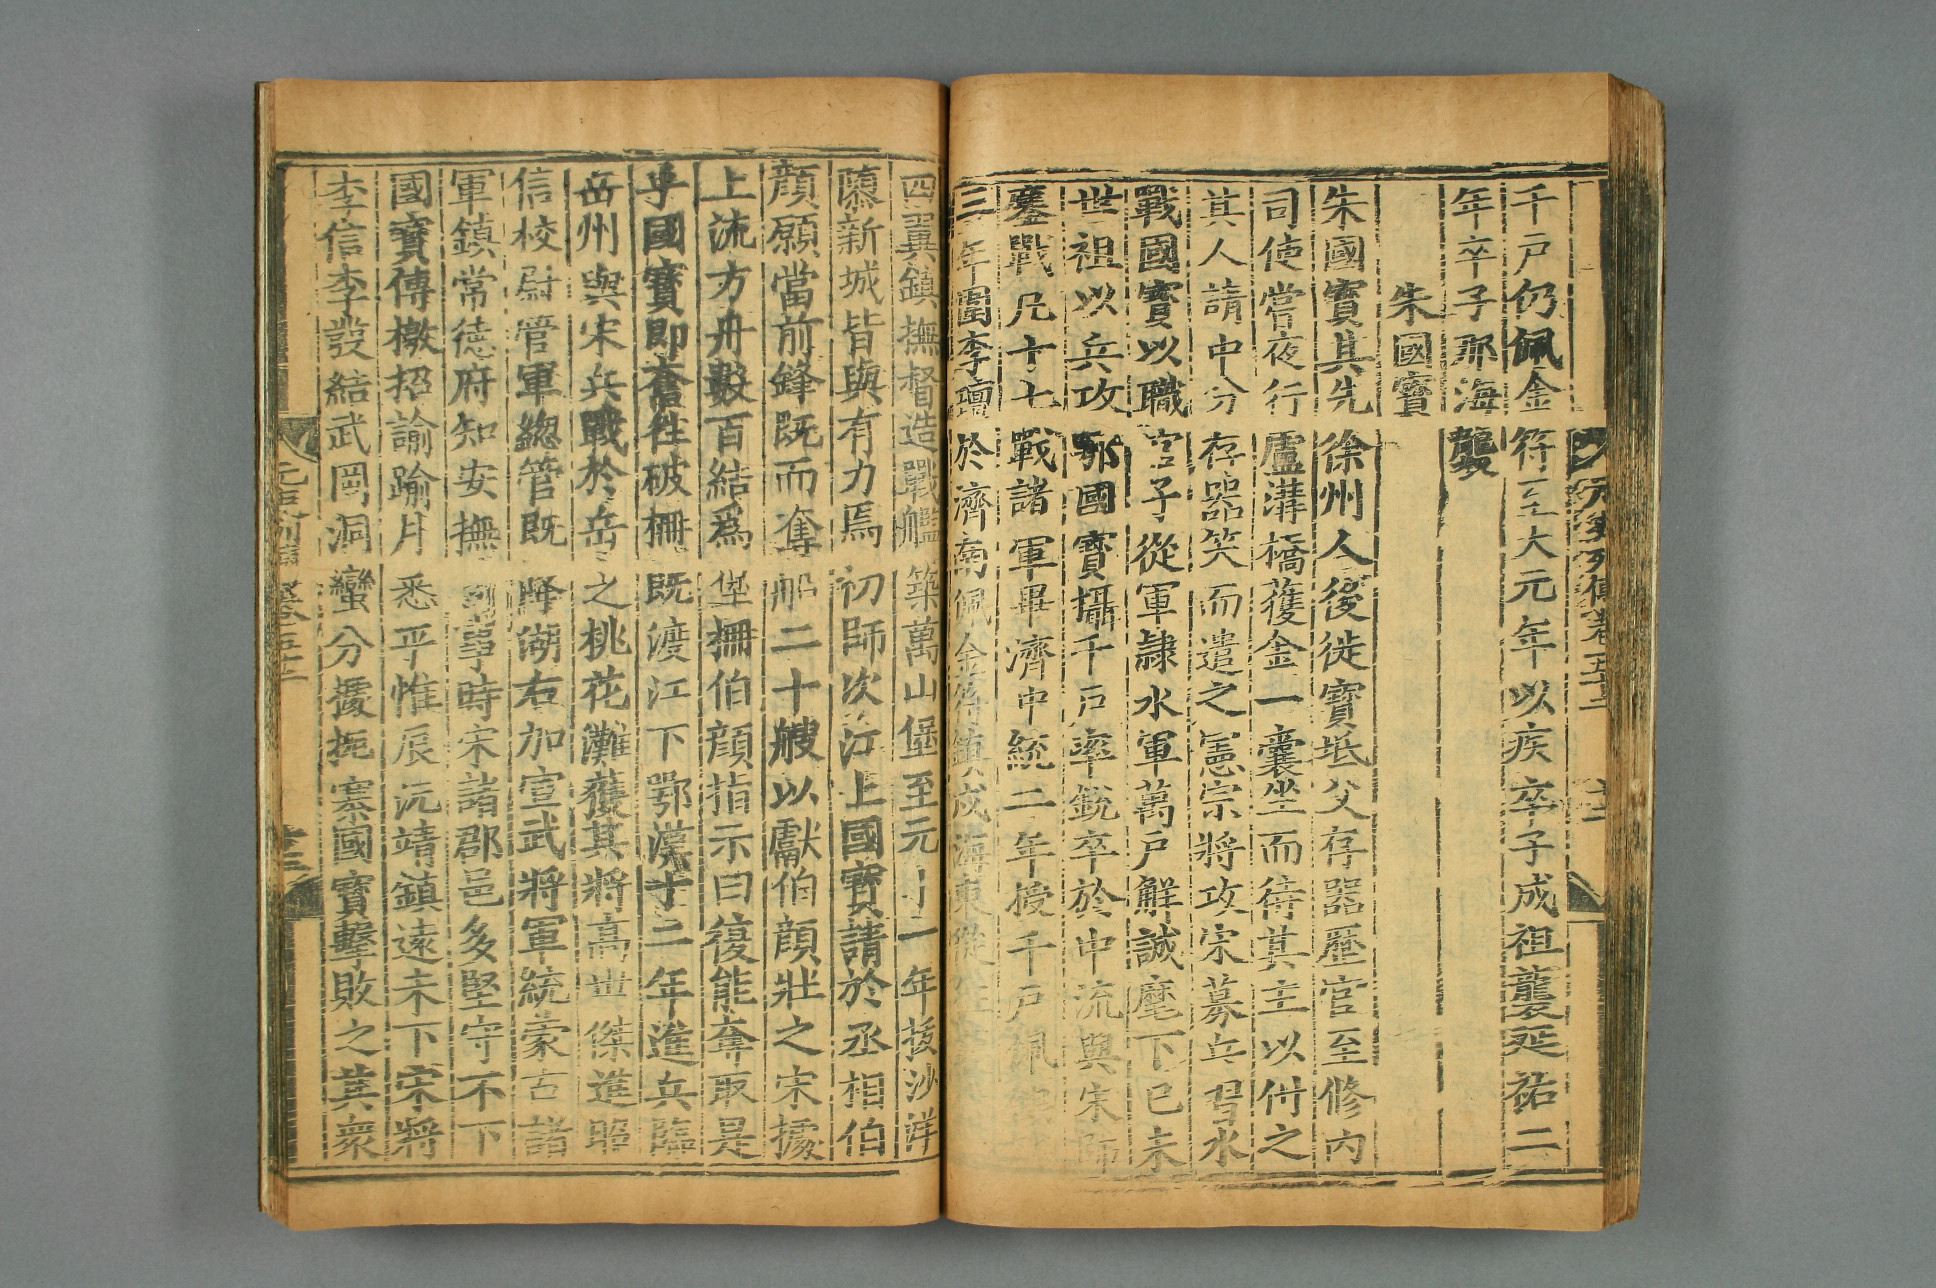 千戸仍佩金符至大元年以疾卒子成祖襲延祐二
年卒子那海襲
朱國寶
朱國寶其先徐州人後徙寶坻父存器歷官至修内
司使嘗夜行盧溝橋獲金一囊坐而待其主以付之
其人請中分存器笑而遣之憲宗將攻宋募兵習水
戰國寶以職官子從軍隷水軍萬戸解誠麾下己未
世祖以兵攻鄂國寶攝千戸率銳卒於中流與宋師
鏖戰凡十七戰諸軍畢濟中統二年授千戸佩
三年圍李璮於濟南佩金符鎮戍海東從
四翼鎮撫督造戰艦築萬山堡至元十一年拔沙洋
隳新城皆與有力焉初師次江上國寶請於丞相伯
顔願當前鋒既而奪船二十艘以獻伯顔壯之宋據
上流方舟數百結爲堡柵伯顔指示曰復能奪取是
乎國寶即奮往破柵既渡江下鄂漢十二年進兵臨
岳州與宋兵戰於岳之桃花灘獲其將高世傑進昭
信校尉管軍總管既降湖右加宣武將軍統蒙古諸
軍鎮常德府知安撫司事時宋諸郡邑多堅守不下
國寶傳檄招諭踰月悉平惟辰沅靖鎮遠未下宋將
李信李發結武岡洞蠻分據扼寨國寶擊敗之其衆